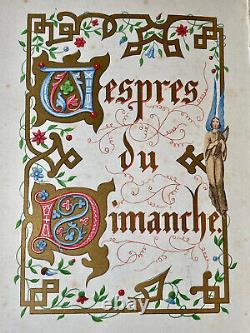 Vespres
du
Dimanche.
ebay